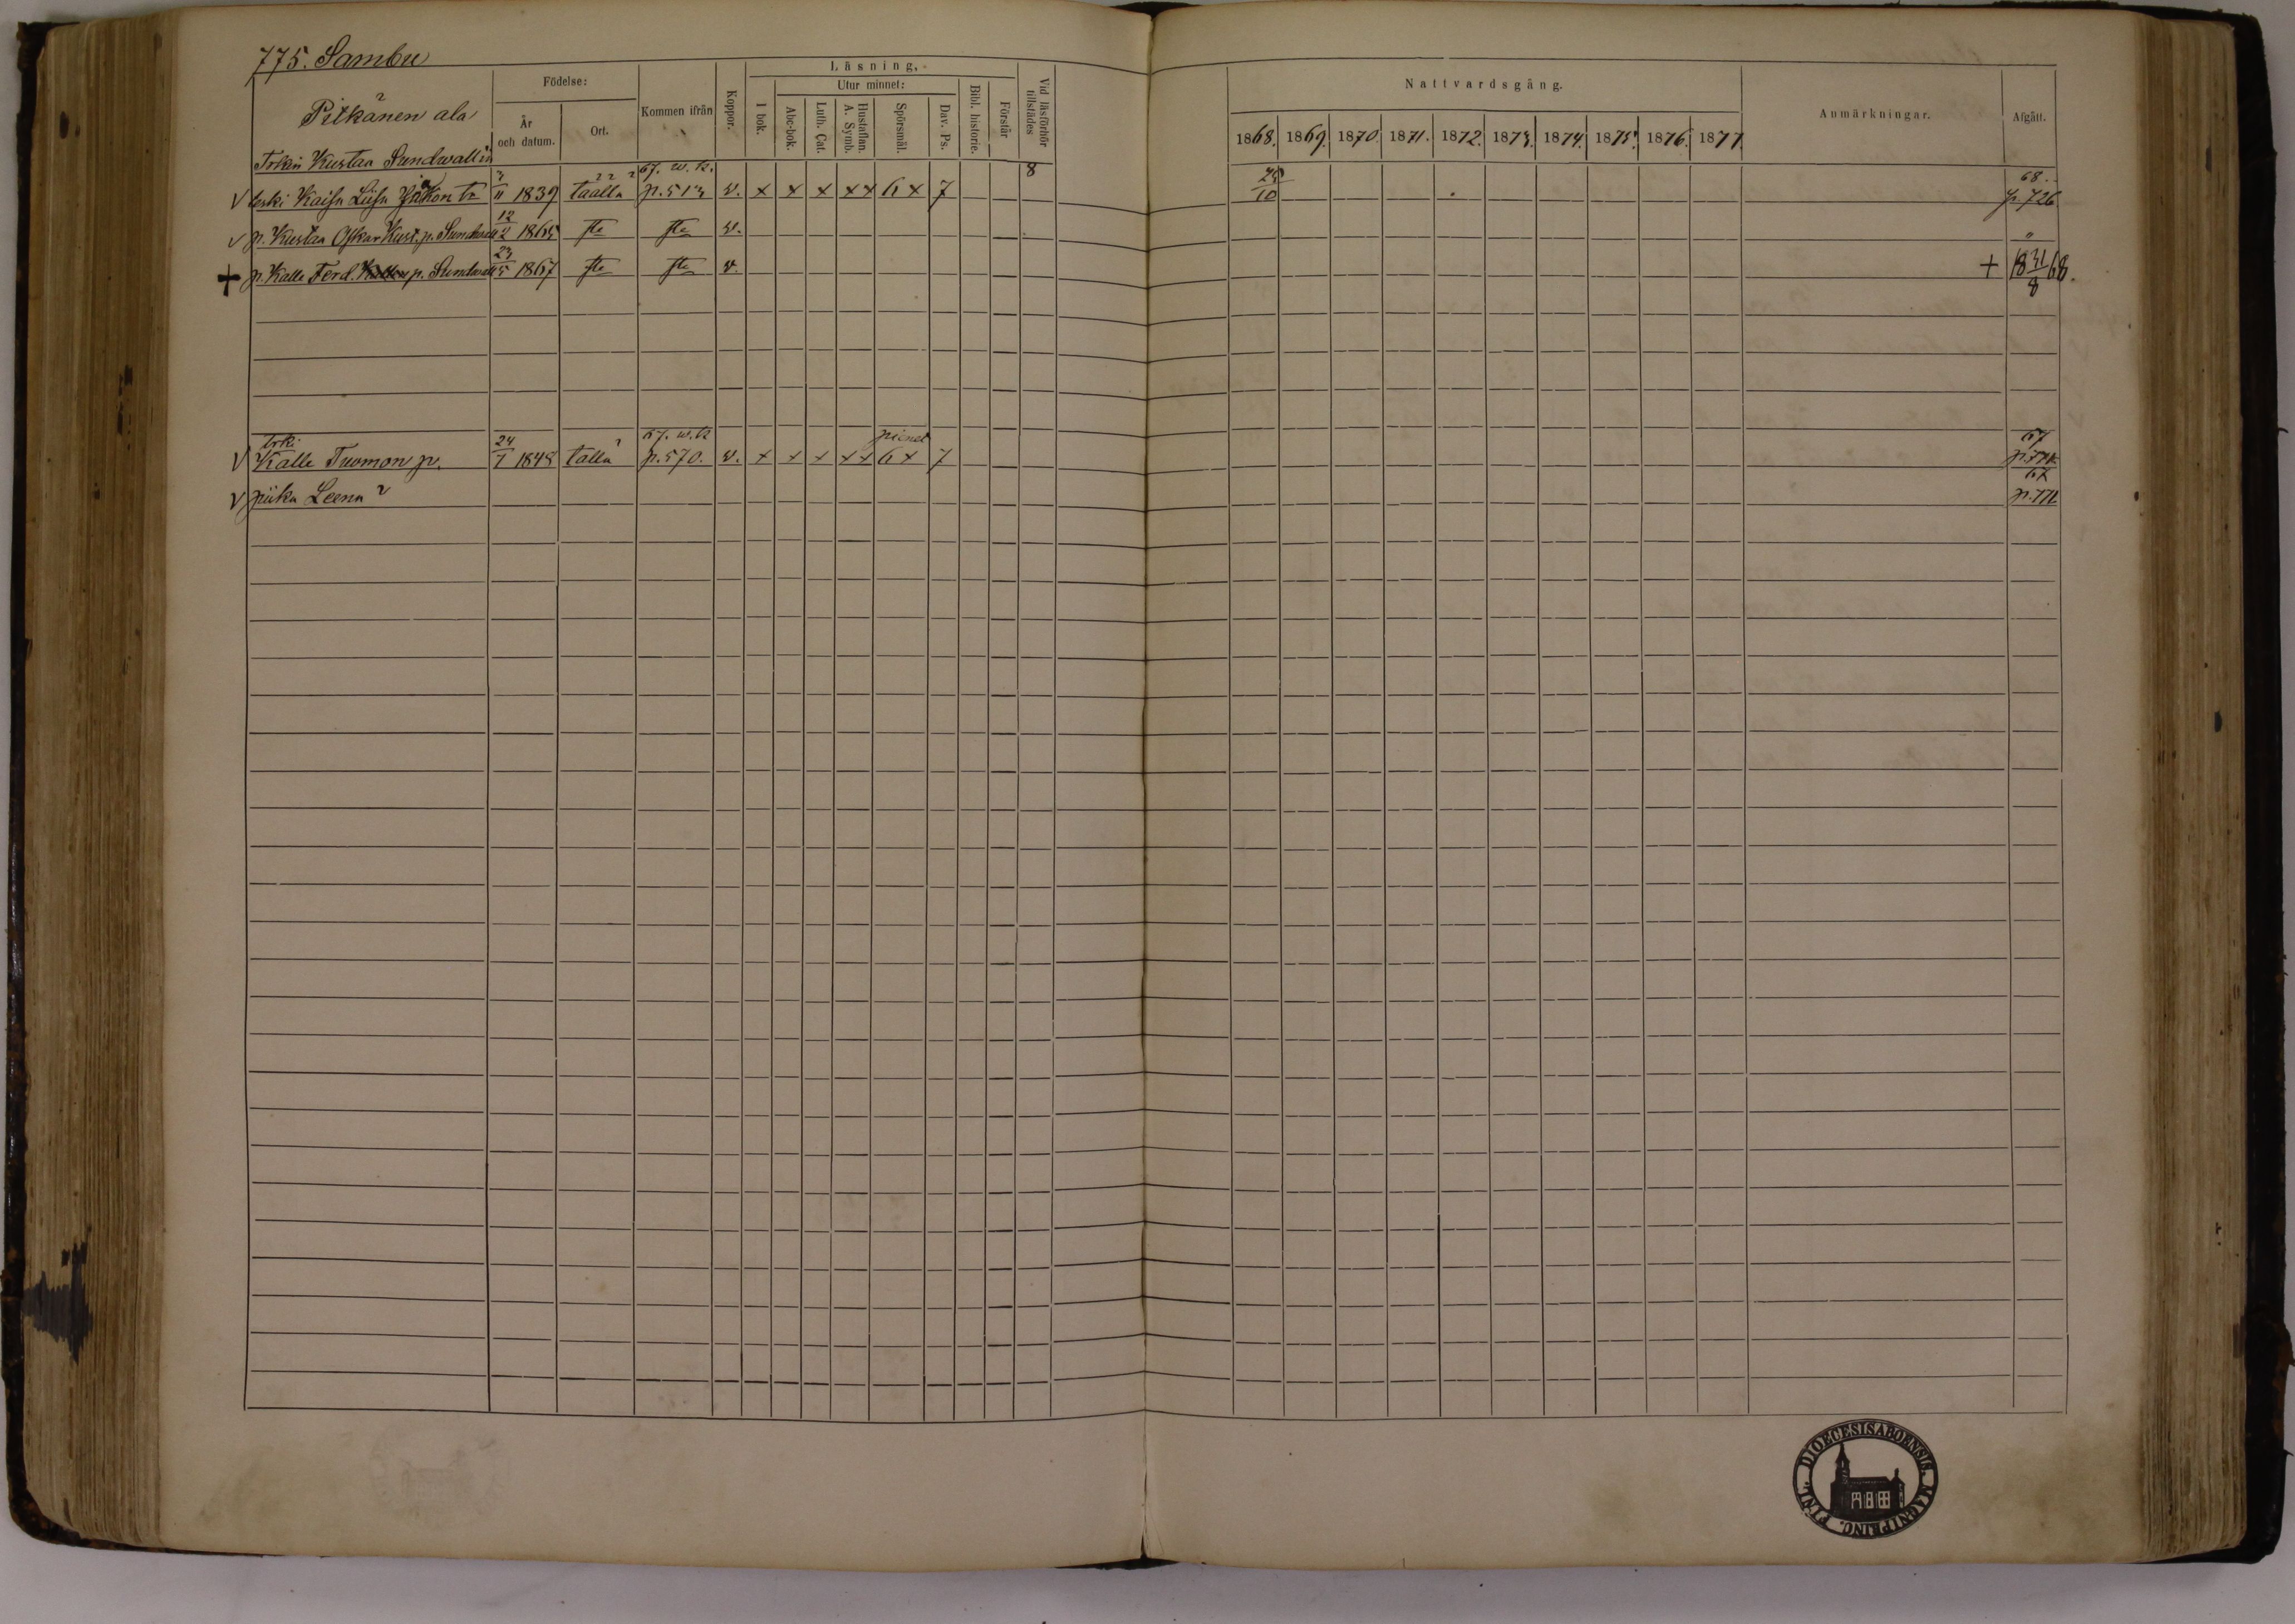 775. Sambu
Pitkänen ala
Födelse:
År
och datum.
Ort.
Kommen ifrån
Koppor.
Läsning,
Utur minnet:
I bok.
Abc-bok.
Luth. Cat.
Hustaflan.
A. Symb.
Spörsmål.
Dav. Ps.
Bibl. historie.
Förstår
Vid läsförhör
tillstädes
Nattvardsgång.
1868. 1869. 1870. 1871. 1872. 1873. 1874. 1875. 1876. 1877.
Anmärkningar.
Afgått.
Trkin Kustaa Sundwallin 67. w. k. 8 68.
leski Kaisa Liisa Jaakon tr 3/11 1839 täällä p. 513 v. x x x x x 6 x 7 25/10 p. 726
p. Kustaa Oskar Kust. p. Sundwall 12/2 1865 v. "
+ p. Kalle Ferd. p. Sundwall 23/5 1867 v. + 18 31/8 68.
trki 67. w. k pienet 67
Kalle Tuomon p. 24/7 1848 tallä p. 570. v. x x x x x 6 x 7
piika Leena 67